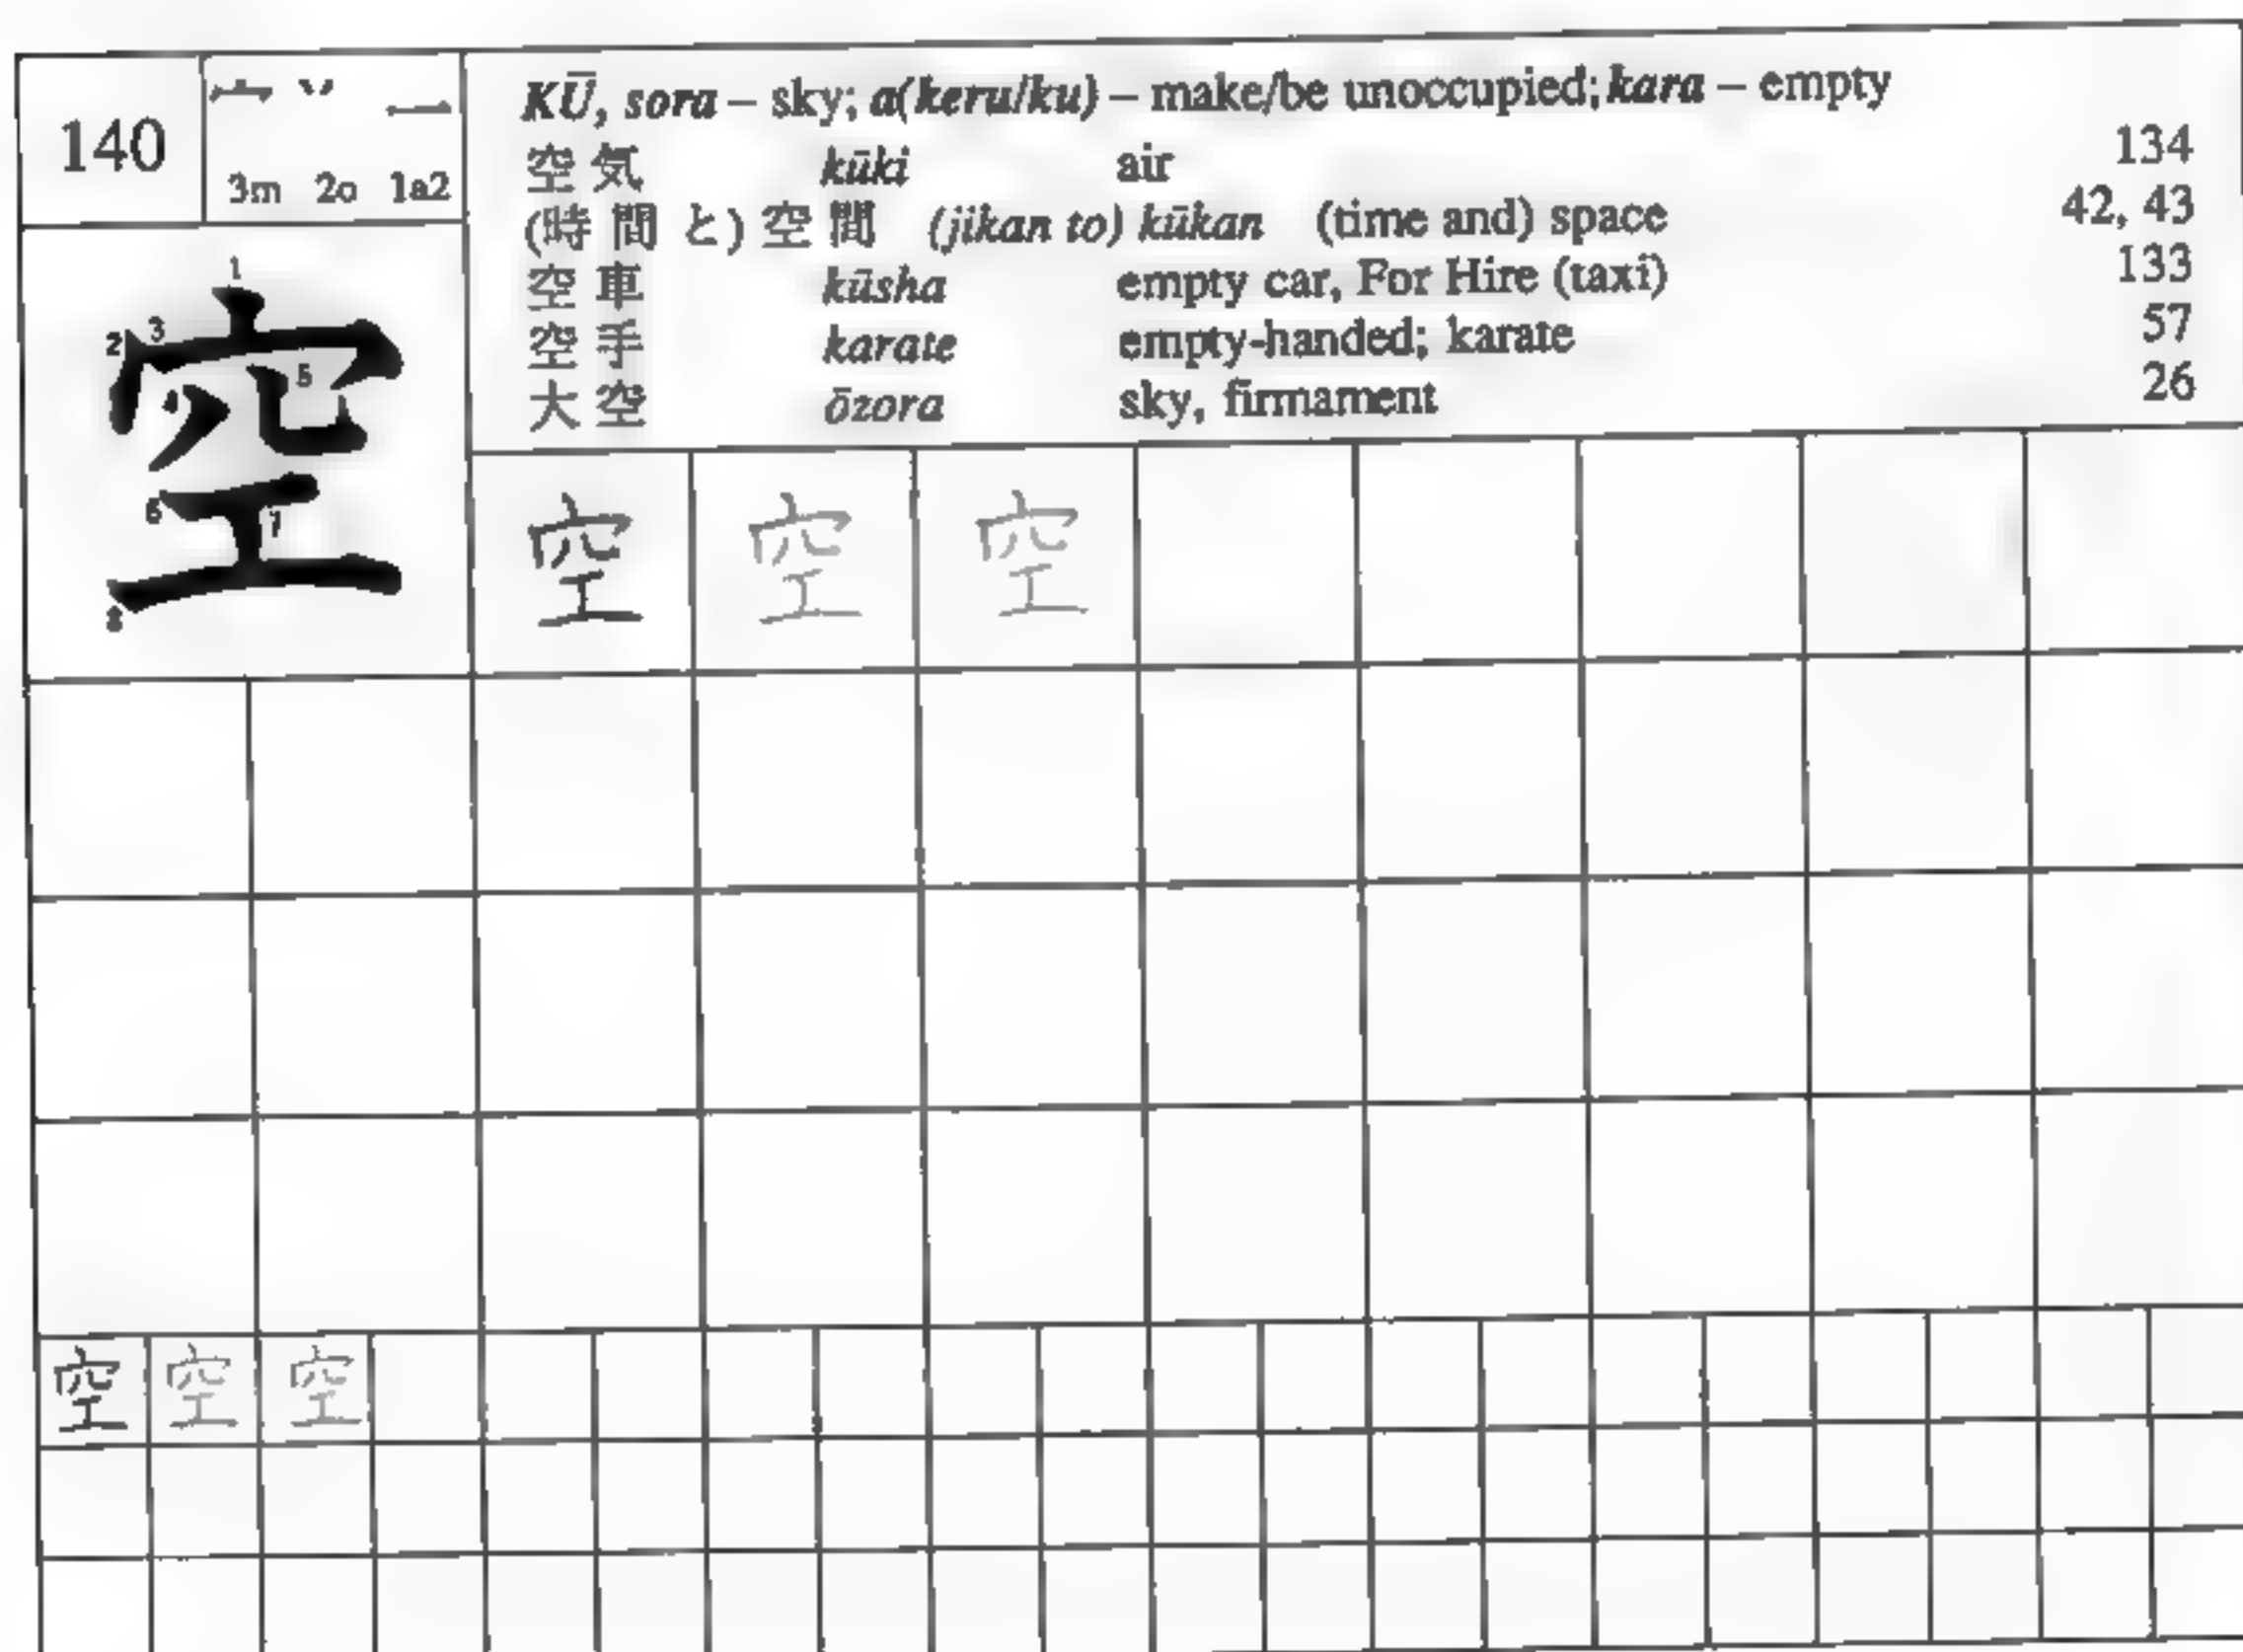 140
3m 2o 1a2
KŪ, sora – sky; a(keru/ku) – make/be unoccupied; kara – empty
空気 kūki air 134
(時間と)空間 (jikan to) kūkan (time and) space 42, 43
空車 kūsha empty car, For Hire (taxi) 133
空手 karate empty-handed; karate 57
大空 ōzora sky, firmament 26
1
2 3
4 5
6 7
8
空
空 空 空
空 空 空